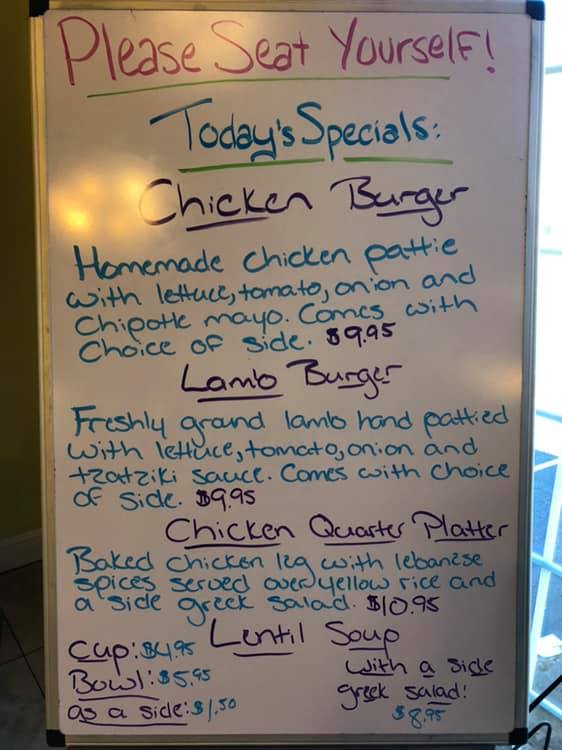 Please Seat Yourself!
Today's Specials:
Chicken Burger
Homemade chicken pattie
with lettuce, tomato, onion and
Chipotle mayo. Comes with
Choice of side. $9.95
Lamb Burger
Freshly grand lamb hand pattied
with lettuce, tomato, onion and
tzatziki sauce. Comes with choice
of side. $9.95
Chicken Quarter Platter
Baked chicken leg with lebanese
spices served over yellow rice and
a side greek salad. $10.95
Lentil Soup
Cup: $4.95
Bowl: $5.95
as a side: $1.50
with a side
greek salad!
$8.95